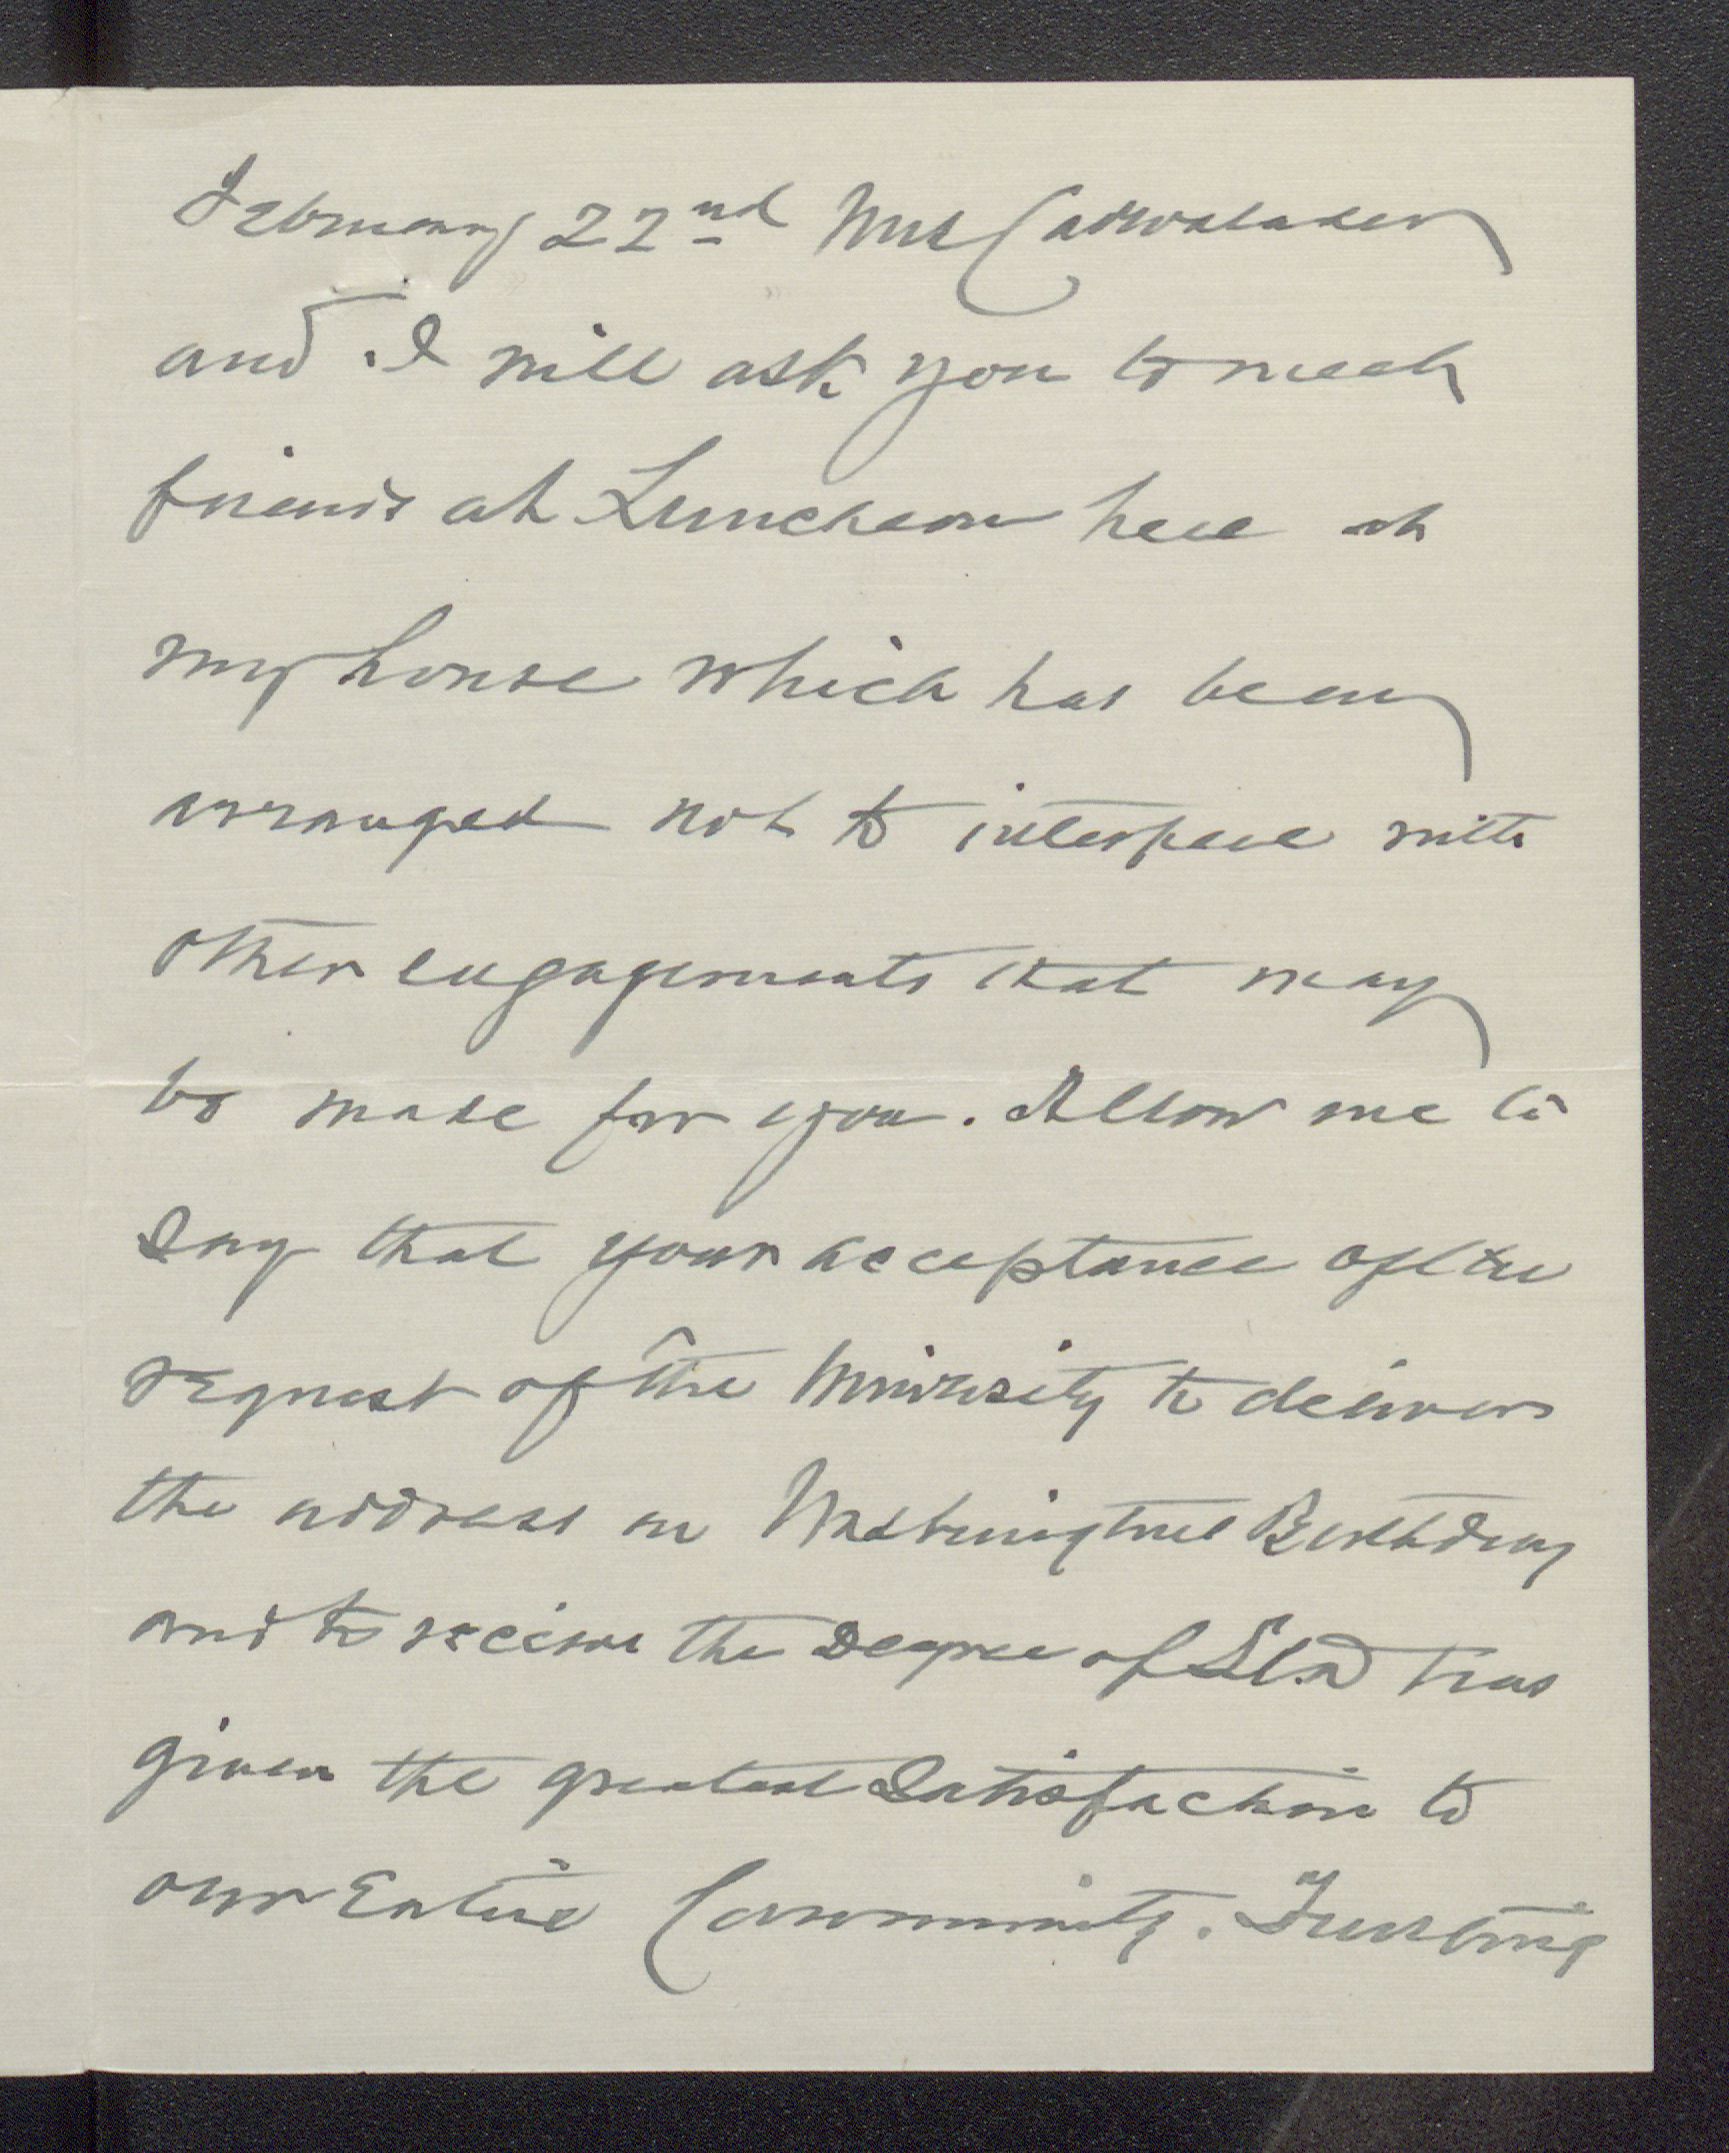 February 22nd Mrs Cadwalader
and I will ask you to meet
friends at Luncheon here at
my house which has been
arranged not to interfere with
other engagements that may
be made for you. Allow me to
say that your acceptance of the
request of the University to deliver
the address on Washingtons Birthday
and to receive the Degree of LLD has
given the greatest satisfaction to
our Entire Community. Trusting